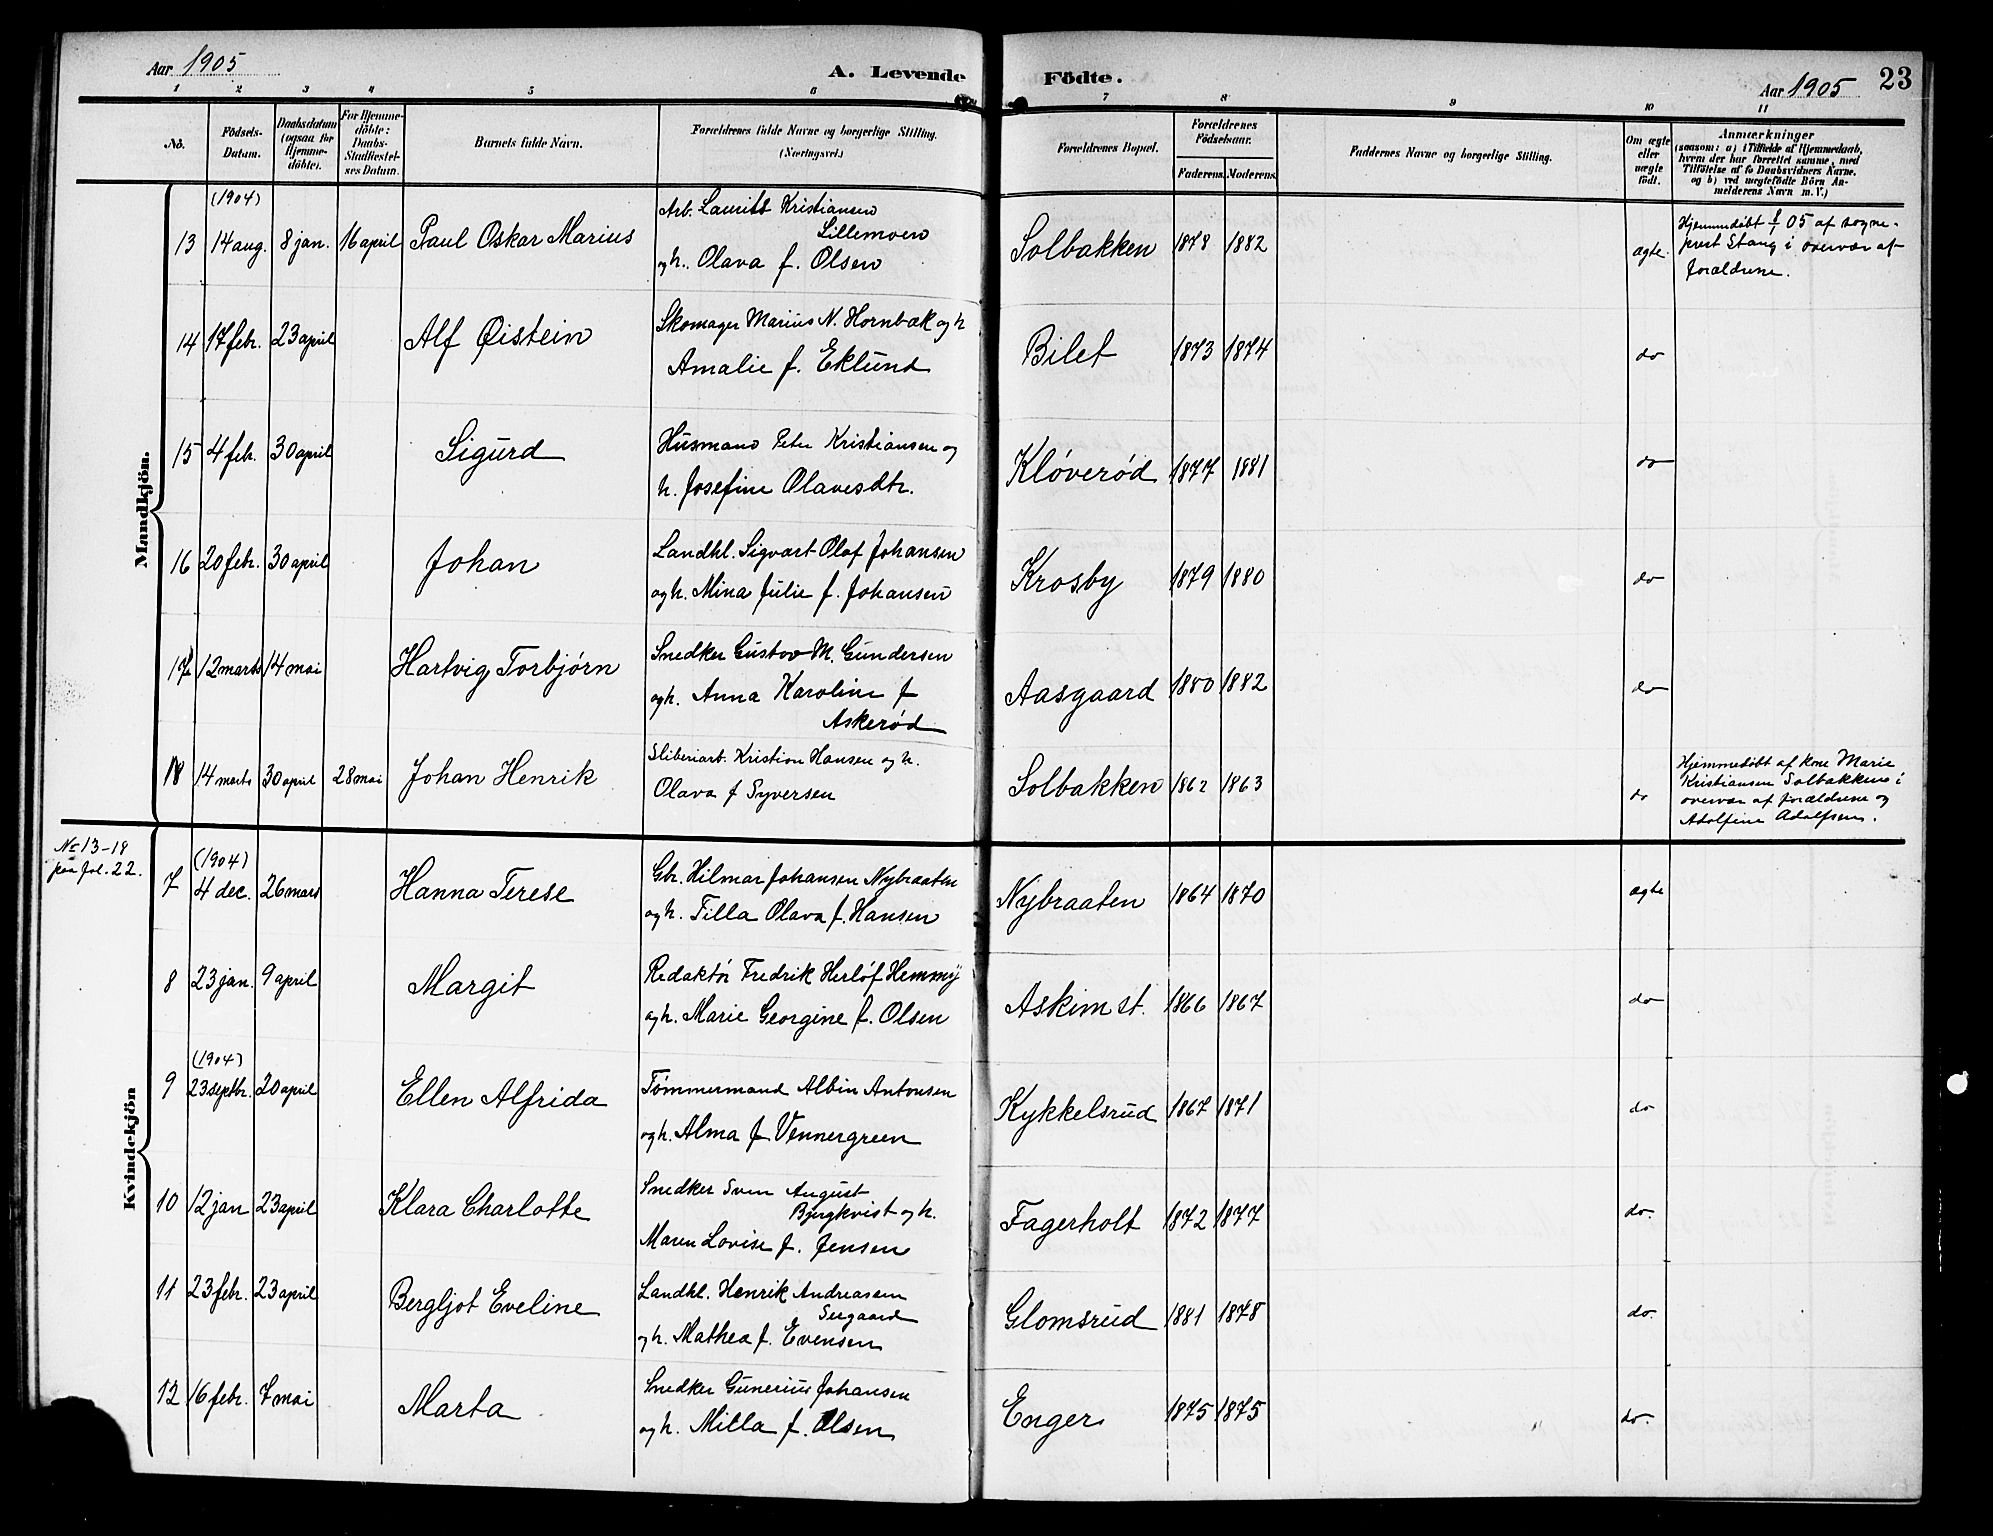 Aar 1905
A. Levende
Födte.
23
Aar 1905
1 2 3 4 5 6 7 8 9 10 11
No.
Födsels-
Datum.
Daabsdatum
(ogsaa for
Hjemme-
döbte).
For Hjemme-
döbte:
Daabs-
Stadfæstel-
ses Datum.
Barnets fulde Navn.
Forældrenes fulde Navne og borgerlige Stilling.
(Næringsvei.)
Forældrenes Bopæl.
Forældrenes
Födselsaar.
Faderens. Moderens.
Faddernes Navne og borgerlige Stilling.
Om ægte
eller
uægte
födt.
Anmærkninger
(saasom: a) i Tilfælde af Hjemmedaab,
hvem der har forrettet samme, med
Tilföielse af to Daabsvidners Navne,
og b) ved uægtefödte Börn An-
melderens Navn m. V.)
Mandkjön.
(1904)
13 14 aug. 8 jan. 16 april Paul Oskar Marius
Arb. Lauritz Kristiansen
Lillemoen
og h. Olava f. Olsen
Solbakken 1878 1882 ægte.
Hjemmedøbt 05 af sogne-
prest Stang i overvær af
forældrene.
14 17 febr. 23 april Alf Øistein
Skomager Marius N. Hornbæk og h
Amalie f. Eklund
Bilet 1873 1874 do
15 4 feb. 30 april Sigurd
Husmand Peter Kristiansen og
h. Josefine Olavesdtr.
Kløverød 1877 1881 do
16 20 febr. 30 april Johan
Landhl. Sigvart Olaf Johansen
og h. Mina Julie f. Johansen
Krosby 1879 1880 do
17 12 marts 14 mai Hartvig Torbjørn
Snedker Gustav M. Gundersen
og h. Anna Karoline f
Askerød
Aasgaard 1880 1882 do
18 14 marts 30 april 28 mai Johan Henrik
Sliberiarb. Kristian Hansen og h.
Olava f Syversen
Solbakken 1862 1863 do
Hjemmedøbt af kone Marie
Kristiansen Solbakken i
overvær af forældrene og
Adolfine Adolfsen.
No 13-18
paa fol. 22.
Kvindekjön
(1904)
7 4 dec. 26 mars Hanna Terese
Gbr. Hilmar Johansen Nybraaten
og h. Tilla Olava f. Hansen
Nybraaten 1864 1870 ægte
8 23 jan. 9 april Margit
Redaktør Fredrik Herlof Hemmy
og h. Marie Georgine f. Olsen
Askim st. 1866 1867 do
(1904)
9 23 septbr. 20 april Ellen Alfrida
Tømmermand Albin Antonsen
og h. Alma f Vennergreen
Kykkelsrud 1867 1871 do
10 12 jan 23 april Klara Charlotte
Snedker Sven August
Bjergkvist og h.
Maren Lovise f. Jensen
Fagerholt 1872 1877 do.
11 23 febr. 23 april Bergljot Eveline
Landhl. Henrik Andreassen
og h. Mathea f. Evensen
Glomsrud 1881 1878 do.
12 16 febr. 7 mai Marta
Snedker Gunerius Johansen
og h. Milla f. Olsen
Enger 1875 1875 do.